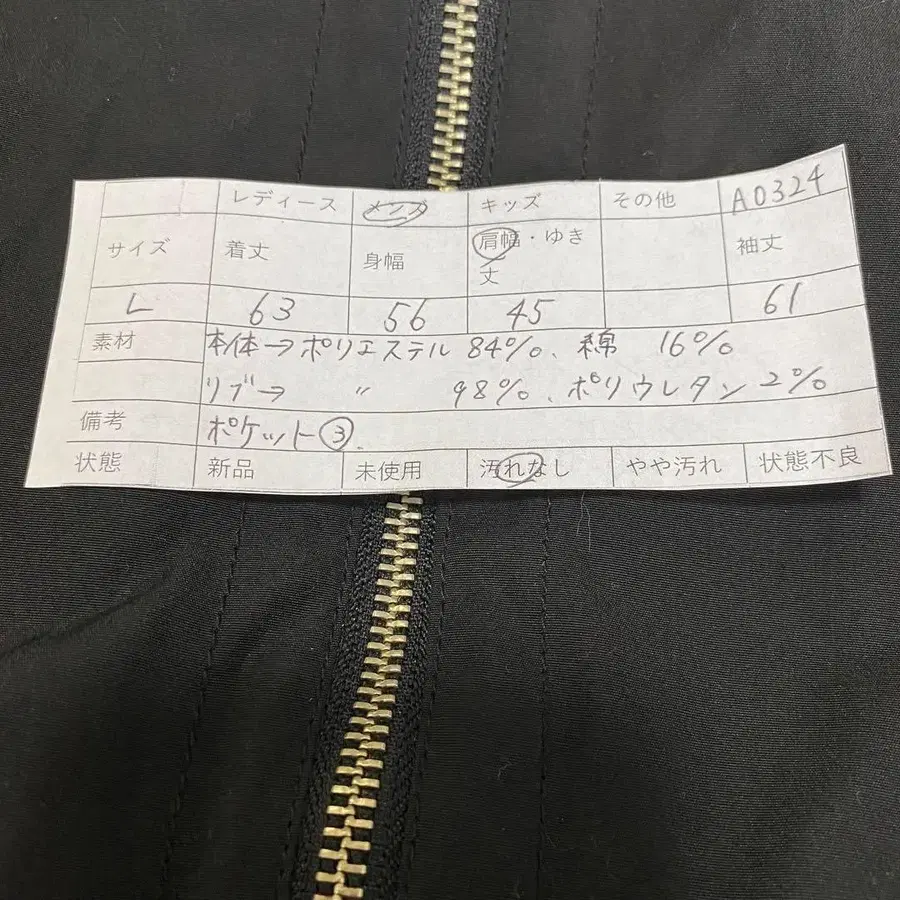 レディース メンズ キッズ その他 A0324
サイズ 着丈 身幅 肩幅・ゆき丈 袖丈
L 63 56 45 61
素材 本体→ポリエステル 84%、綿 16%
リブ→ 〃 98%、ポリウレタン 2%
備考 ポケット③.
状態 新品 未使用 汚れなし やや汚れ 状態不良